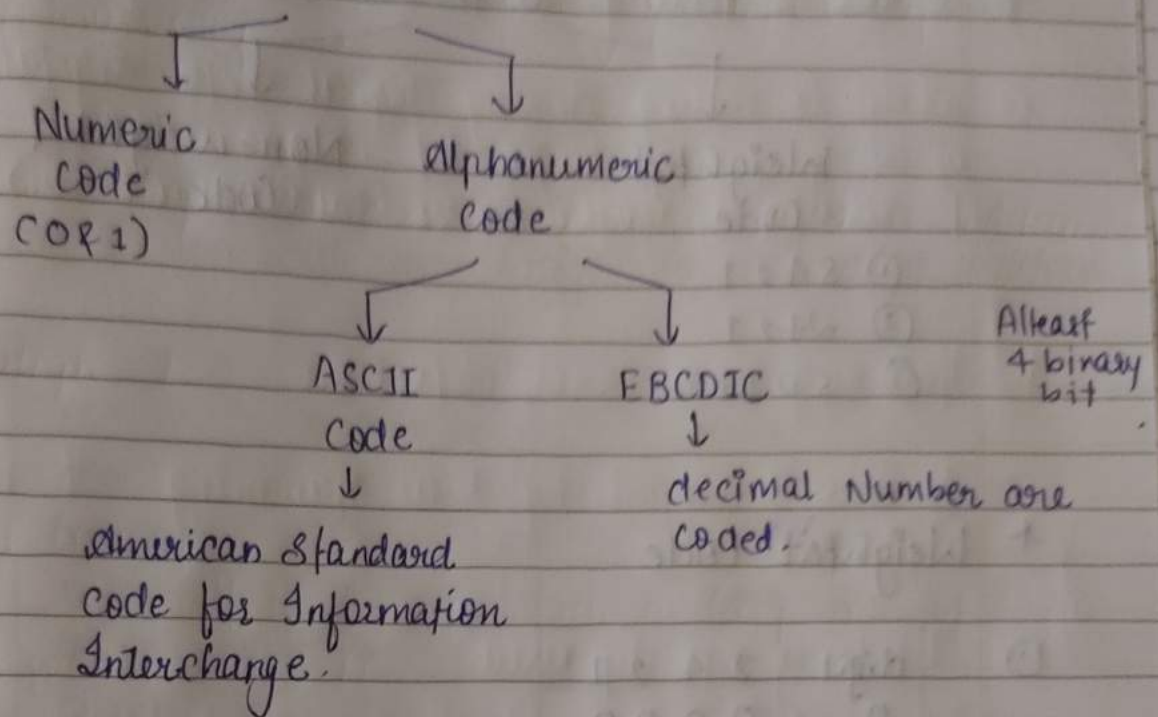 Numeric
Code
(OR 1)
Alphanumeric
Code
ASCII
Code
American Standard
Code for Information
Interchange.
EBCDIC
decimal Number are
coded.
Atleast
4 binary
bit